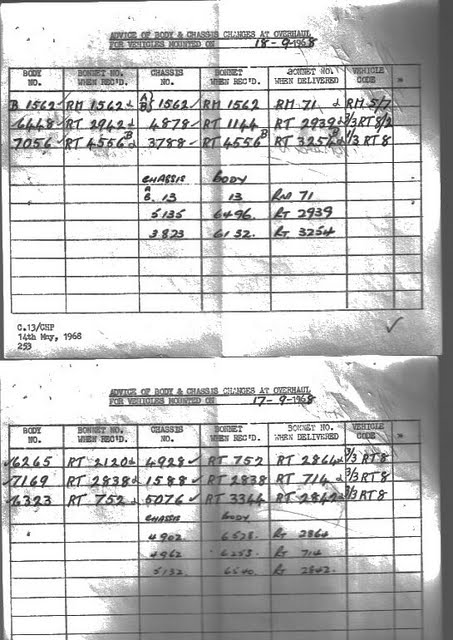 ADVICE OF BODY & CHASSIS CHANGES AT OVERHAUL
FOR VEHICLES MOUNTED ON 18-9-1968
BODY NO. BONNET NO. WHEN REC'D. CHASSIS NO. BONNET WHEN REC'D. BONNET NO. WHEN DELIVERED VEHICLE CODE
B 1562 ✓ RM 1562 A/B 1562 ✓ RM 1562 RM 71 RM 5/7
6448 ✓ RT 2942 4878 ✓ RT 1144 RT 2939 3/3 RT 8/2
7056 ✓ RT 4556 B 3788 ✓ RT 4556 B RT 3254 B 1/3 RT 8
CHASSIS BODY
A
B. 13 13 RM 71
5135 6496. RT 2939
3823 6132. RT 3254
C.13/CHP
14th May, 1968
253
✓
ADVICE OF BODY & CHASSIS CHANGES AT OVERHAUL
FOR VEHICLES MOUNTED ON 17-9-1968
BODY NO. BONNET NO. WHEN REC'D. CHASSIS NO. BONNET WHEN REC'D. BONNET NO. WHEN DELIVERED VEHICLE CODE
✓ 6265 RT 2120 4928 ✓ RT 752 RT 2864 3/3 RT 8
✓ 7169 RT 2838 1588 ✓ RT 2838 RT 714 3/3 RT 8
✓ 6323 RT 752 5076 ✓ RT 3344 RT 2842 3/3 RT 8
CHASSIS BODY
4902. 6528. RT 2864
4962 6253. RT 714
5132. 6540. RT 2842.